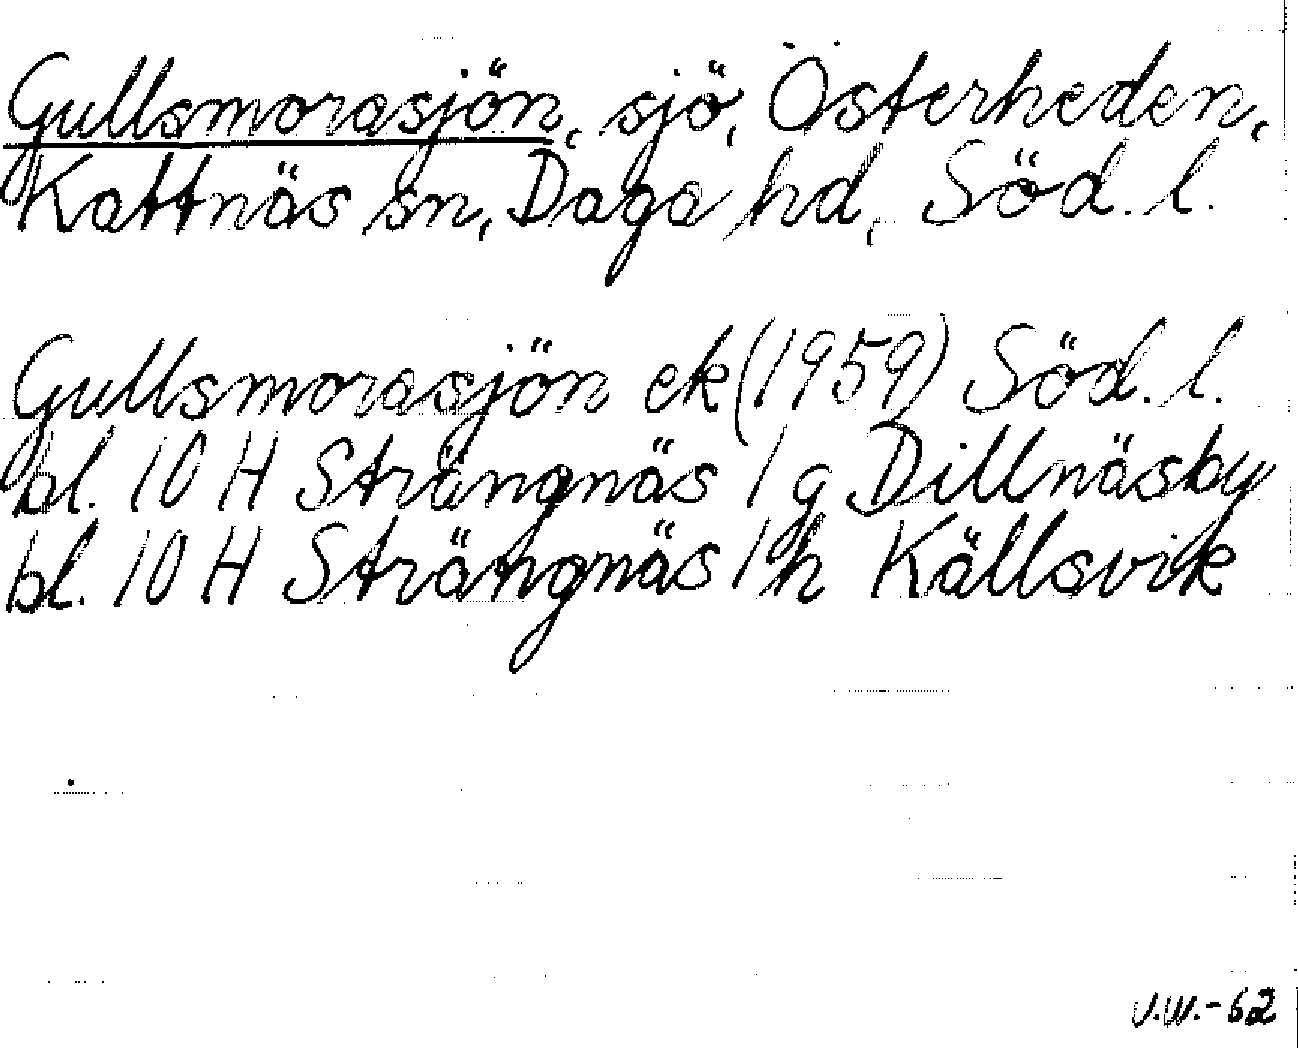 Gullsmorasjön, sjö, Österheden,
Kattnäs sn, Daga hd, Söd. l.
Gullsmorasjön ek (1959) Söd. l.
bl. 10 H Strängnäs 1 g Dillnäsby
bl. 10 H Strängnäs 1 h Källsvik
V.W.-62